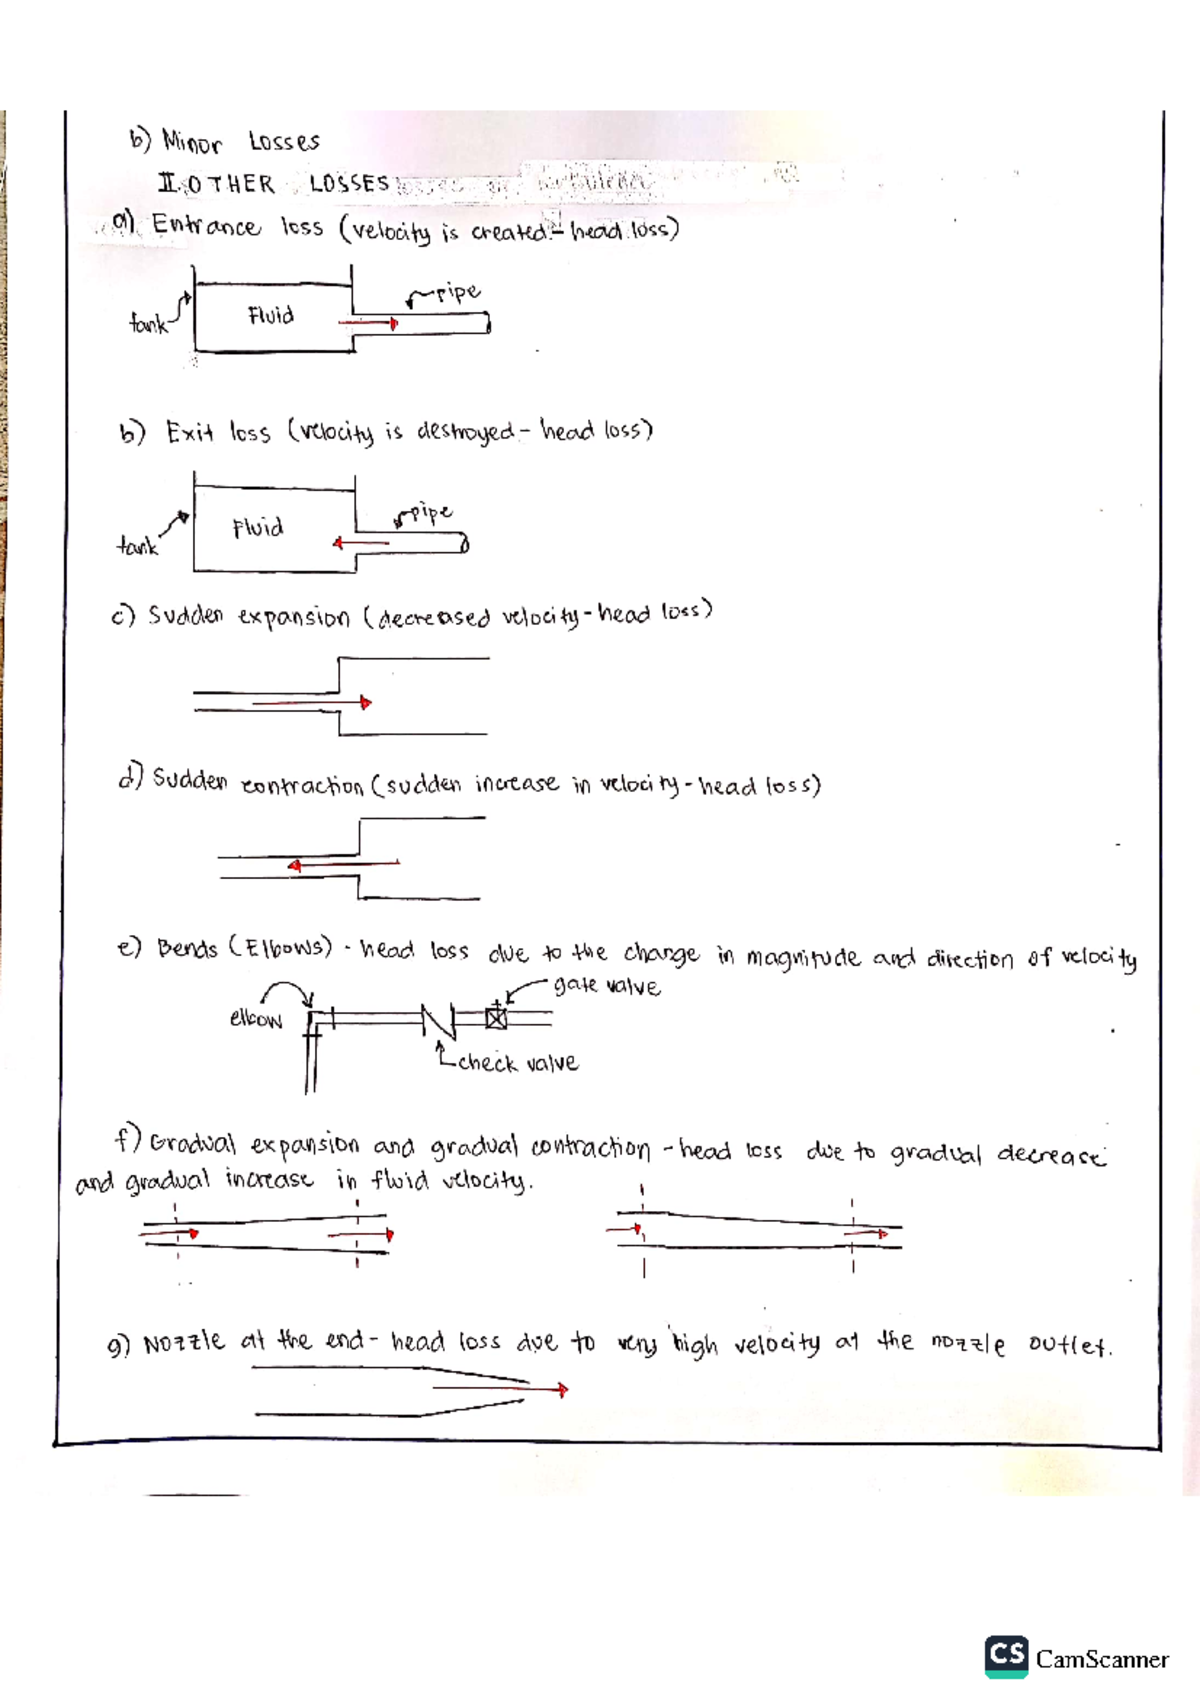 b) Minor Losses
II. OTHER LOSSES
a) Entrance loss (velocity is created - head loss)
tank
Fluid
pipe
b) Exit loss (velocity is destroyed - head loss)
tank
Fluid
pipe
c) Sudden expansion (decreased velocity - head loss)
d) Sudden contraction (sudden increase in velocity - head loss)
e) Bends (Elbows) - head loss due to the change in magnitude and direction of velocity
gate valve
elbow
check valve
f) Gradual expansion and gradual contraction - head loss due to gradual decrease
and gradual increase in fluid velocity.
g) Nozzle at the end - head loss due to very high velocity at the nozzle outlet.
CS CamScanner